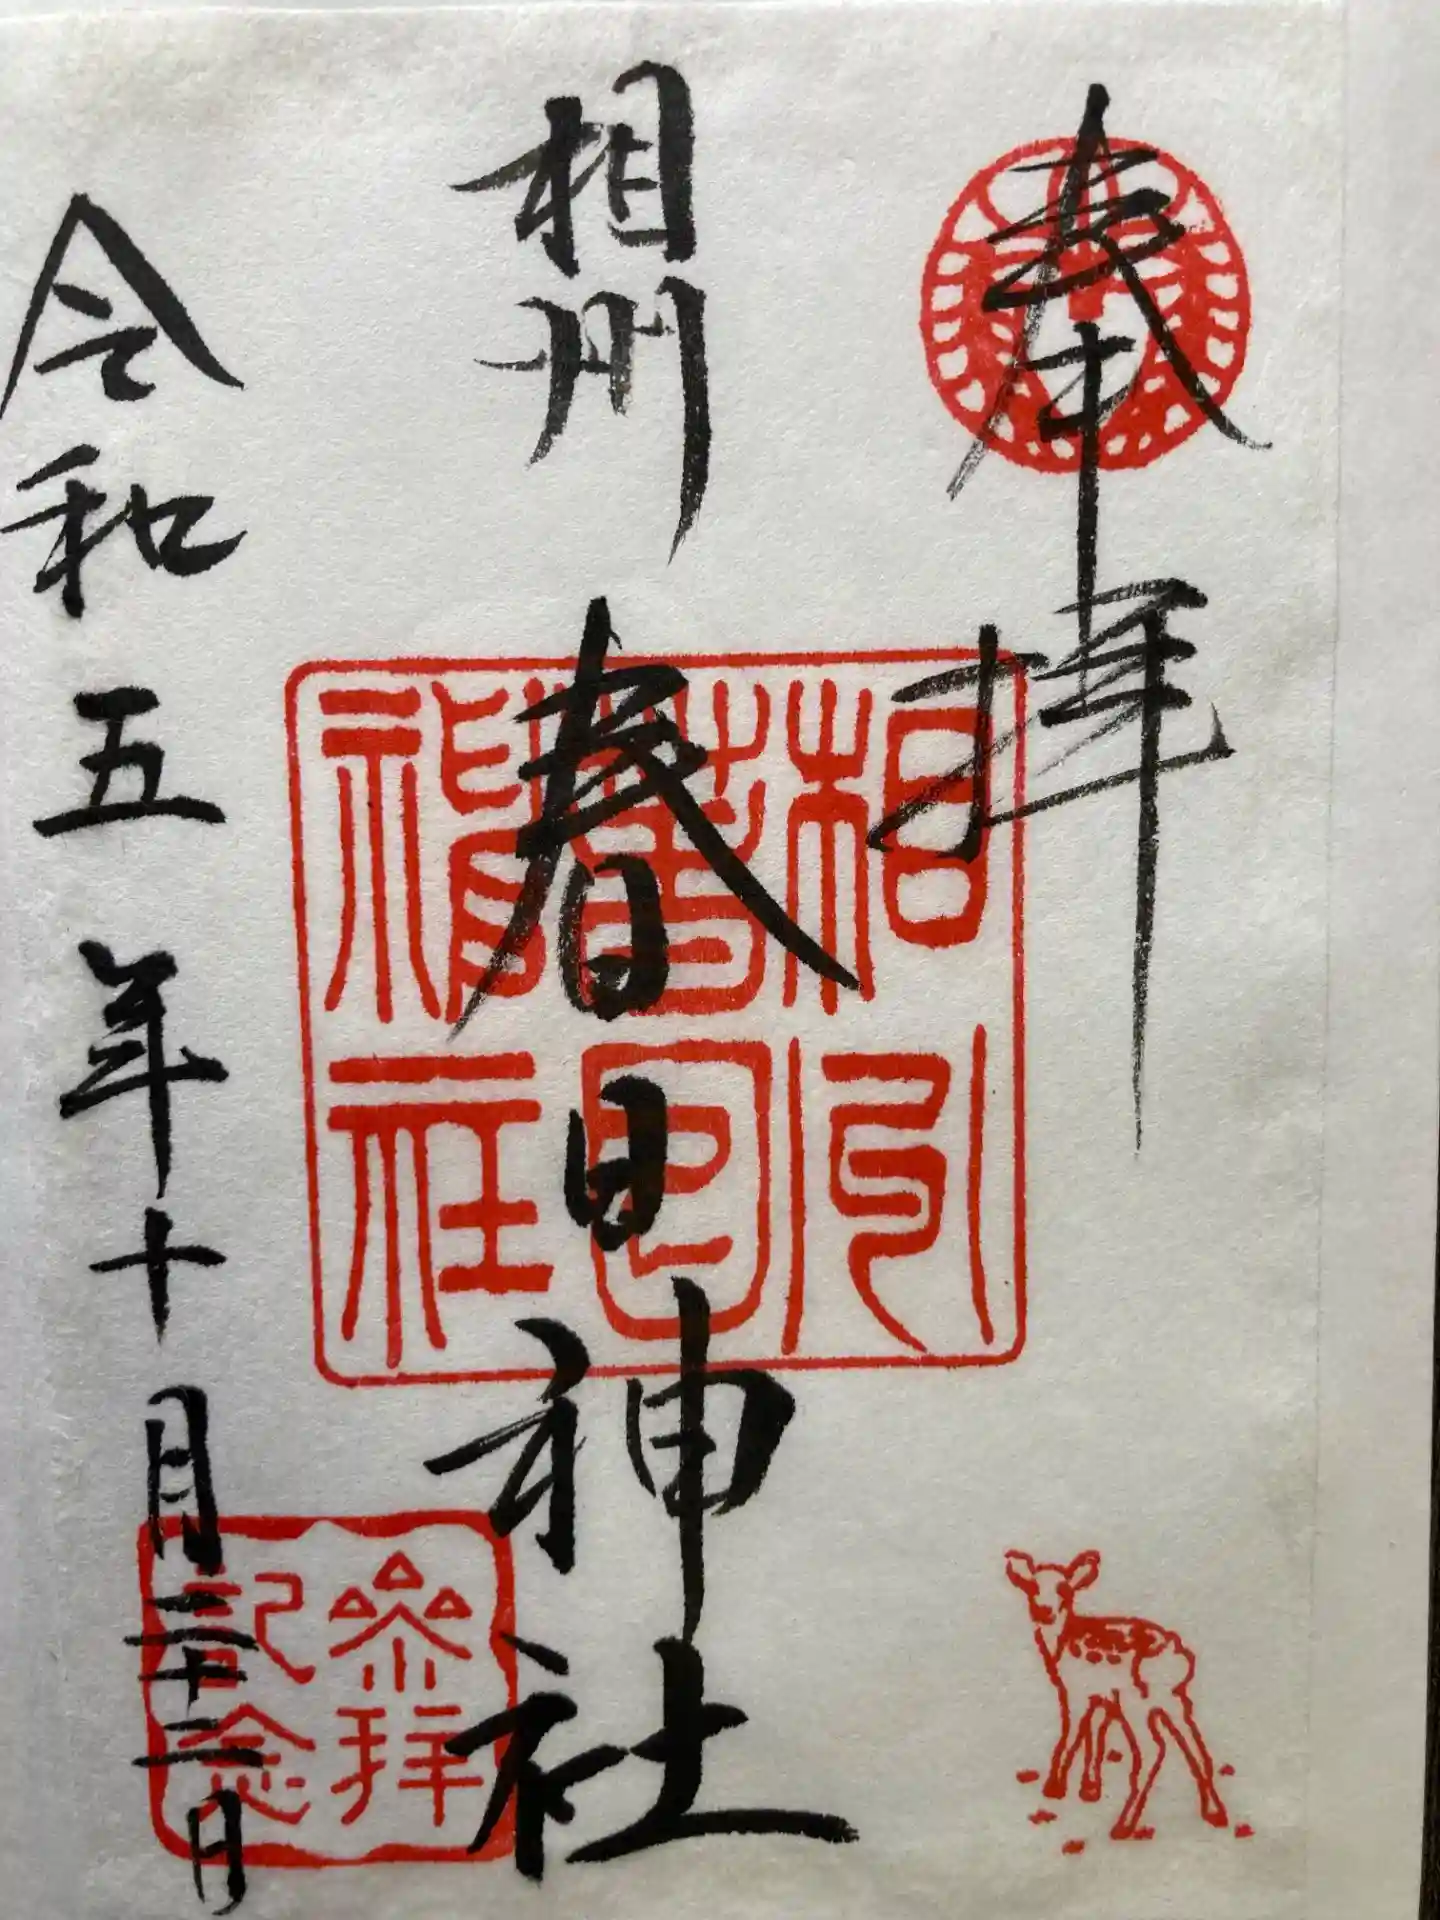 奉拝
相州
春日神社
相州
春日
神社
令和五年十月二十二日
参拝
記念